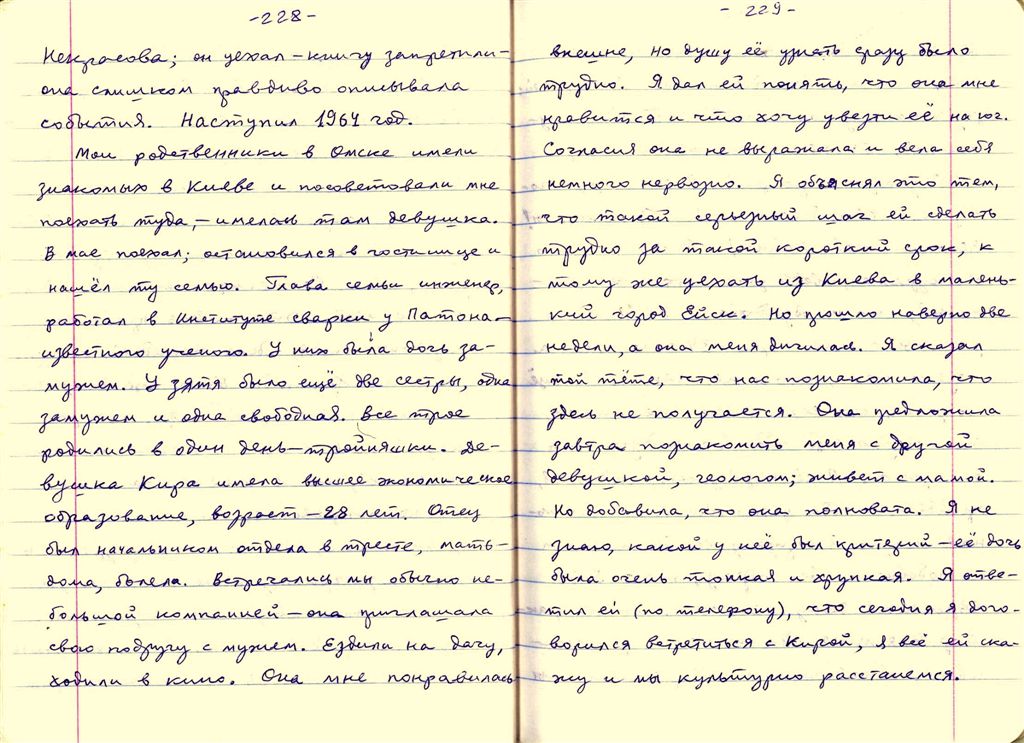 -228-
Некрасова; он уехал - книгу запретили -
она слишком правдиво описывала
события. Наступил 1964 год.
Мои родственники в Омске имели
знакомых в Киеве и посоветовали мне
поехать туда, - имелась там девушка.
В мае поехал; остановился в гостинице и
нашёл ту семью. Глава семьи инженер,
работал в Институте сварки у Патона -
известного ученого. У них была дочь за-
мужем. У зятя было ещё две сестры, одна
замужем и одна свободная. Все трое
родились в один день - тройняшки. Де-
вушка Кира имела высшее экономическое
образование, возраст - 28 лет. Отец
был начальником отдела в тресте, мать -
дома, болела. Встречались мы обычно не-
большой компанией - она приглашала
свою подругу с мужем. Ездили на дачу,
ходили в кино. Она мне понравилась
- 229 -
внешне, но душу её узнать сразу было
трудно. Я дал ей понять, что она мне
нравится и что хочу увезти её на юг.
Согласия она не выражала и вела себя
немного нервозно. Я объяснял это тем,
что такой серьезный шаг ей сделать
трудно за такой короткий срок; к
тому же уехать из Киева в малень-
кий город Ейск. Но прошло наверно две
недели, а она меня дичилась. Я сказал
той тёте, что нас познакомила, что
здесь не получается. Она предложила
завтра познакомить меня с другой
девушкой, геологом; живет с мамой.
Но добавила, что она полновата. Я не
знаю, какой у неё был критерий - её дочь
была очень тонкая и хрупкая. Я отве-
тил ей (по телефону), что сегодня я дого-
ворился встретиться с Кирой, я всё ей ска-
жу и мы культурно расстанемся.